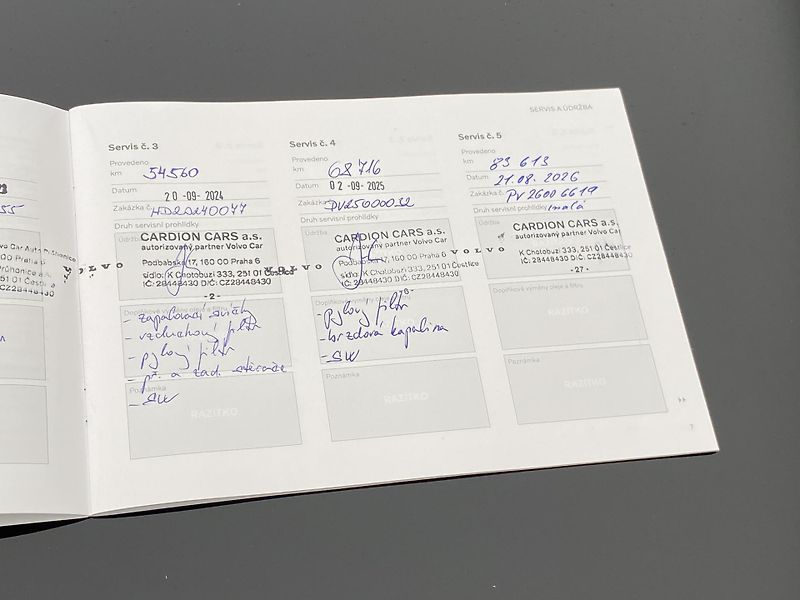 SERVIS A ÚDRŽBA
Servis č. 3
Provedeno
km 54560
Datum 20 -09- 2024
Zakázka č.
Druh servisní prohlídky
Údržba
CARDION CARS a.s.
autorizovaný partner Volvo Car
Podbabská 17, 160 00 Praha 6
sídlo: K Chotobuzi 333, 251 01 Čestlice
IČ: 28448430 DIČ: CZ28448430
- 2 -
Doplňkové výměny oleje a filtru
- zapalovací svíčky
- vzduchový filtr
- pylový filtr
- př. a zad. stěrače
Poznámka
- SW
RAZÍTKO
Servis č. 4
Provedeno
km 68 716
Datum 02 -09- 2025
Zakázka č.
Druh servisní prohlídky
Údržba
CARDION CARS a.s.
autorizovaný partner Volvo Car
Podbabská 17, 160 00 Praha 6
sídlo: K Chotobuzi 333, 251 01 Čestlice
IČ: 28448430 DIČ: CZ28448430
Doplňkové výměny oleje a filtru
- pylový filtr
- brzdová kapalina
- SW
Poznámka
RAZÍTKO
Servis č. 5
Provedeno
km 83 613
Datum 21.08. 2026
Zakázka č. PV 2600 6619
Druh servisní prohlídky malá
CARDION CARS a.s.
autorizovaný partner Volvo Car
Podbabská 17, 160 00 Praha 6
sídlo: K Chotobuzi 333, 251 01 Čestlice
IČ: 28448430 DIČ: CZ28448430
- 27 -
VOLVO
Doplňkové výměny oleje a filtru
RAZÍTKO
Poznámka
RAZÍTKO
7